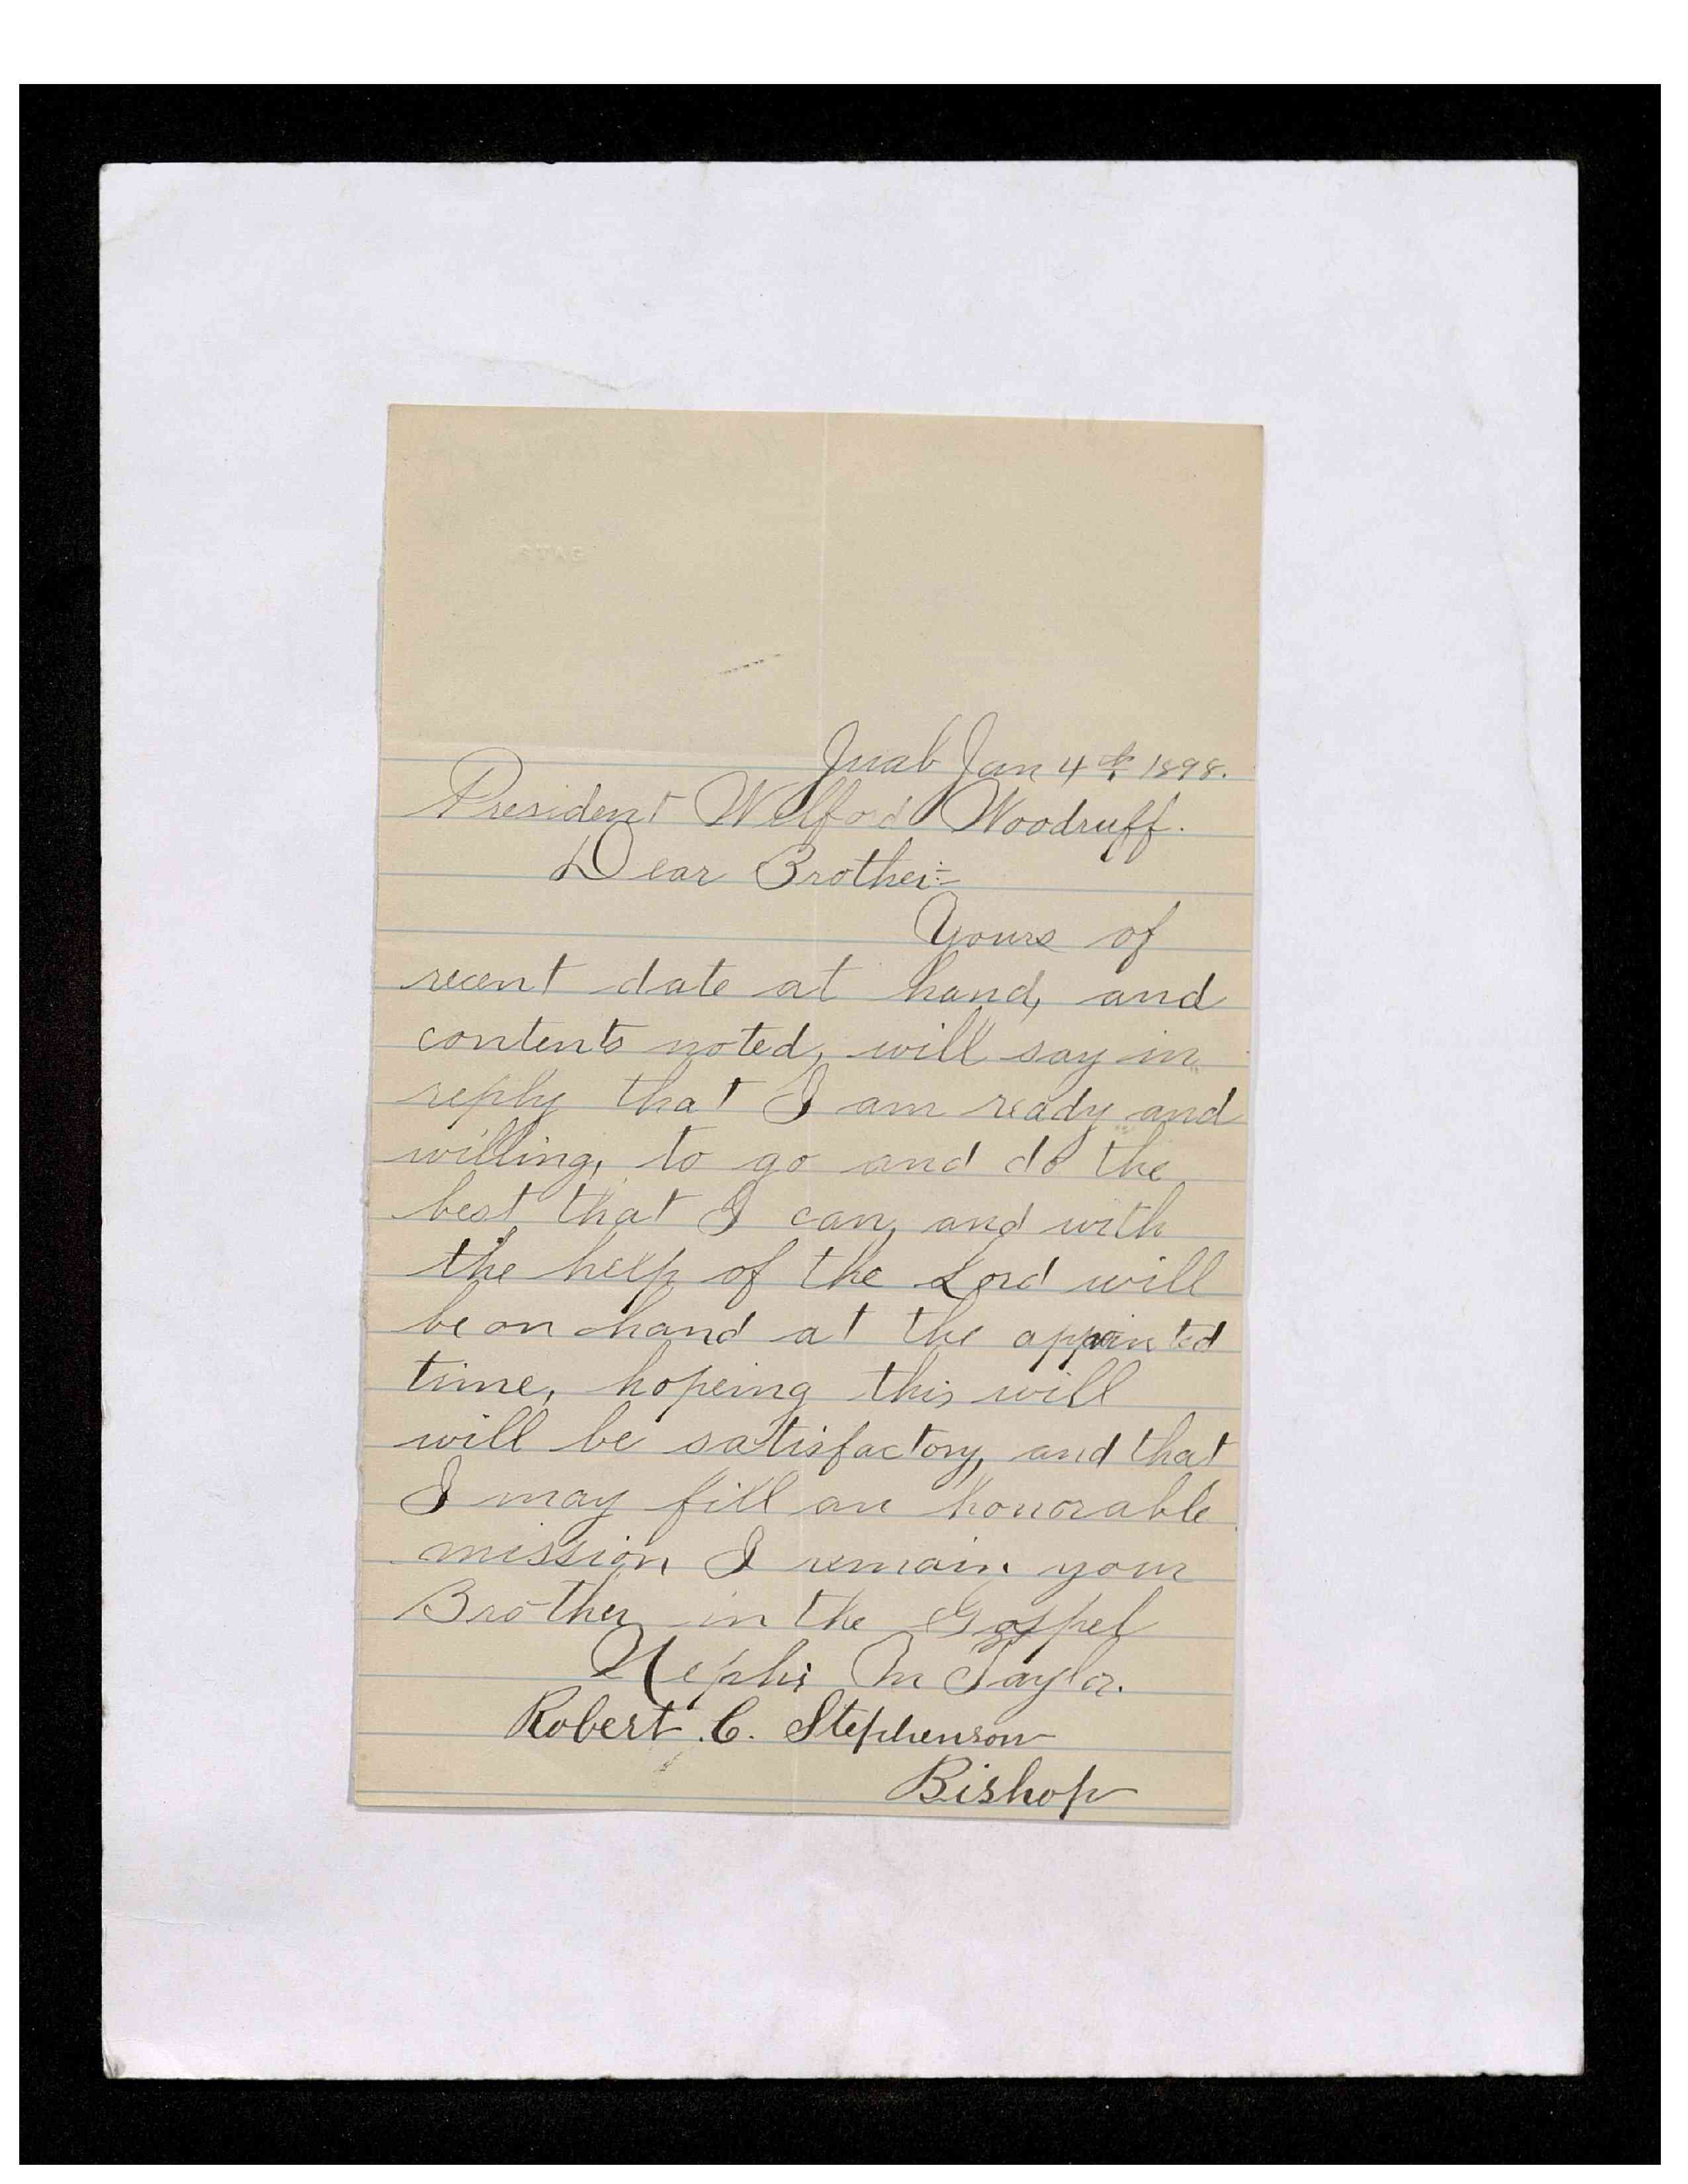 Juab Jan 4th 1898.
President Wilford Woodruff.
Dear Brother:-
Yours of
recent date at hand, and
contents noted, will say in
reply that I am ready and
willing, to go and do the
best that I can, and with
the help of the Lord will
be on hand at the appointed
time, hopeing this will
will be satisfactory, and that
I may fill an honorable
mission, I remain, your
Brother in the Gospel
Nephi M Taylor.
Robert. C. Stephenson
Bishop